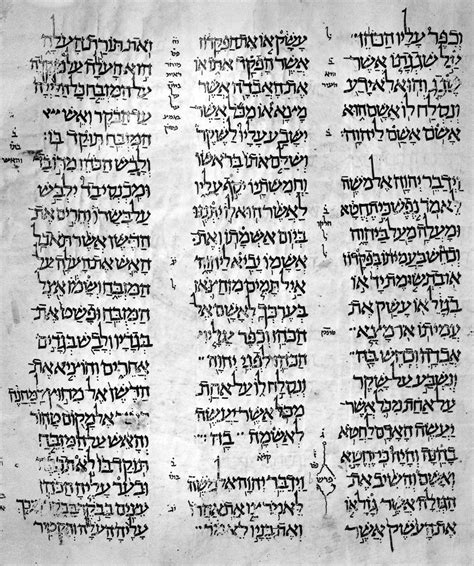 וכפר עליו הכהן
על שגגתו אשר
שגג והוא לא ידע
ונסלח לו אשם הוא
אשם אשם ליהוה
וידבר יהוה אל משה
לאמר נפש כי תחטא
ומעלה מעל ביהוה
וכחש בעמיתו בפקדון
או בתשומת יד או
בגזל או עשק את
עמיתו או מצא
אבדה וכחש בה
ונשבע על שקר
על אחת מכל אשר
יעשה האדם לחטא
בהנה והיה כי יחטא
ואשם והשיב את
הגזלה אשר גזל או
את העשק אשר
עשק או את הפקדון
אשר הפקד אתו או
את האבדה אשר
מצא או מכל אשר
ישבע עליו לשקר
ושלם אתו בראשו
וחמשתיו יסף עליו
לאשר הוא לו יתננו
ביום אשמתו ואת
אשמו יביא ליהוה
איל תמים מן הצאן
בערכך לאשם אל
הכהן וכפר עליו
הכהן לפני יהוה
ונסלח לו על אחת
מכל אשר יעשה
לאשמה בה
וידבר יהוה אל משה
לאמר צו את אהרן
ואת בניו לאמר
זאת תורת העלה
הוא העלה על מוקדה
על המזבח כל הלילה
עד הבקר ואש
המזבח תוקד בו
ולבש הכהן מדו בד
ומכנסי בד ילבש
על בשרו והרים את
הדשן אשר תאכל
האש את העלה על
המזבח ושמו אצל
המזבח ופשט את
בגדיו ולבש בגדים
אחרים והוציא את
הדשן אל מחוץ למחנה
אל מקום טהור
והאש על המזבח
תוקד בו לא תכבה
ובער עליה הכהן
עצים בבקר בבקר וערך
עליה העלה והקטיר